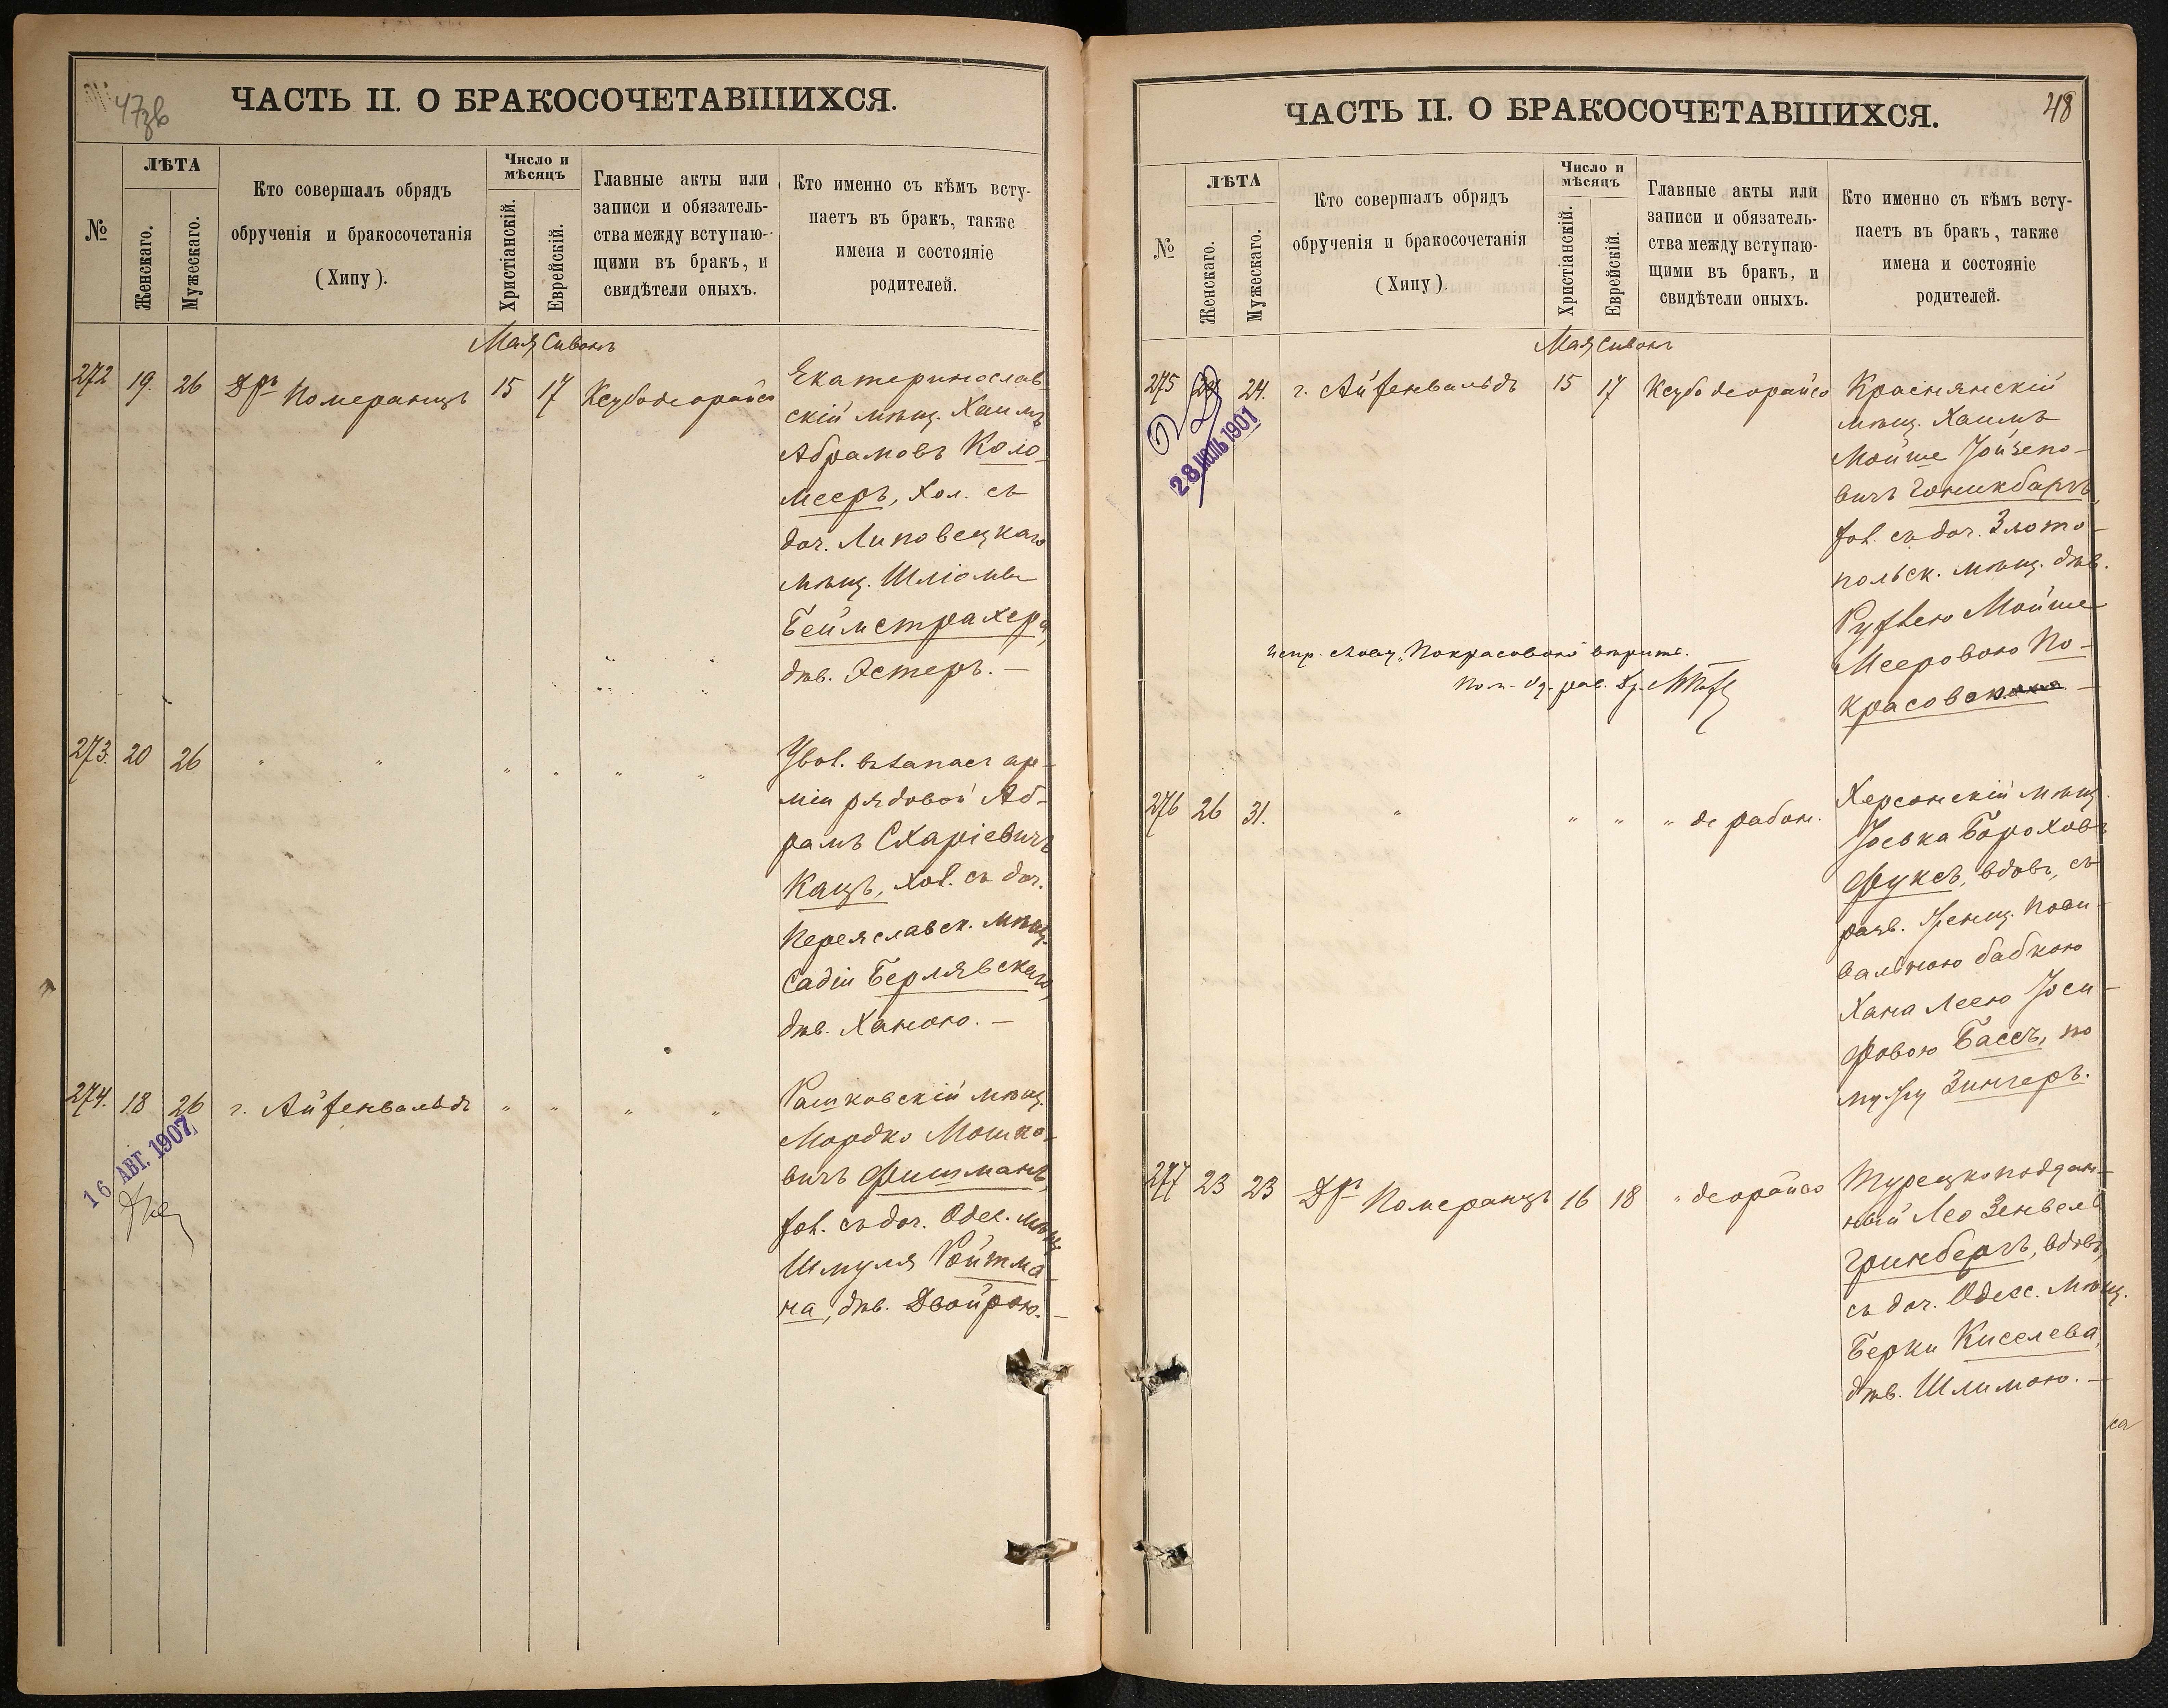 47об
ЧАСТЬ II. О БРАКОСОЧЕТАВШИХСЯ.
№
ЛѢТА
Женскаго.
Мужескаго.
Кто совершалъ обрядъ
обрученія и бракосочетанія
(Хипу).
Число и
мѣсяцъ
Христіанскій.
Еврейскій.
Главные акты или
записи и обязатель-
ства между вступаю-
щими въ бракъ, и
свидѣтели оныхъ.
Кто именно съ кѣмъ всту-
паетъ въ бракъ, также
имена и состояніе
родителей.
Мая Сивонъ
272 19. 26 Дръ Померанцъ 15 17 Ксубо деорайсо
Екатеринослав-
скій мѣщ. Хаимъ
Абрамовъ Коло-
мееръ, хол. съ
доч. Липовецкаго
мѣщ. Шліомы
Беймстрахера,
дѣв. Эстеръ. —
273. 20 26 " " " " " "
Увол. въ запасъ ар-
міи рядовой Аб-
рамъ Схаріевичъ
Кацъ, хол. съ доч.
Переяславск. мѣщ.
Садіи Берлявскаго,
дѣв. Ханою. —
274. 18 26 г. Айзенвальдъ " " " "
16 АВГ. 1907
Рашковскій мѣщ.
Мордко Мошко-
вичъ Фишманъ,
хол. съ доч. Одес. мѣщ.
Шмуля Ройтма-
на, дѣв. Двойрою. —
48
ЧАСТЬ II. О БРАКОСОЧЕТАВШИХСЯ.
№
ЛѢТА
Женскаго.
Мужескаго.
Кто совершалъ обрядъ
обрученія и бракосочетанія
(Хипу).
Число и
мѣсяцъ
Христіанскій.
Еврейскій.
Главные акты или
записи и обязатель-
ства между вступаю-
щими въ бракъ, и
свидѣтели оныхъ.
Кто именно съ кѣмъ всту-
паетъ въ бракъ, также
имена и состояніе
родителей.
Мая Сивонъ
275 24. г. Айзенвальдъ 15 17 Ксубо деорайсо
28 ІЮЛЬ 1901
Краснянскій
мѣщ. Хаимъ
Мойше
вичъ Гоникбаргъ,
хол. съ доч. Злото-
польск. мѣщ. дѣв.
Рухлею Мойше
Мееровою По-
красовск —
276 26 31. " " " " де рабон.
Херсонскій мѣщ.
Іоська Бороховъ
Фуксъ, вдовъ, съ
разв. женщ. пови-
вальною бабкою
Хана Леею Іоси-
фовою Бассъ, по
мужу Зингеръ.
277 23 23 Дръ Померанцъ 16 18 " деорайсо
Турецкоподдан-
ный Лео Зенвель
Гринбергъ, вдовъ,
съ доч. Одесс. мѣщ.
Берки Киселева,
дѣв. Шлимою. —